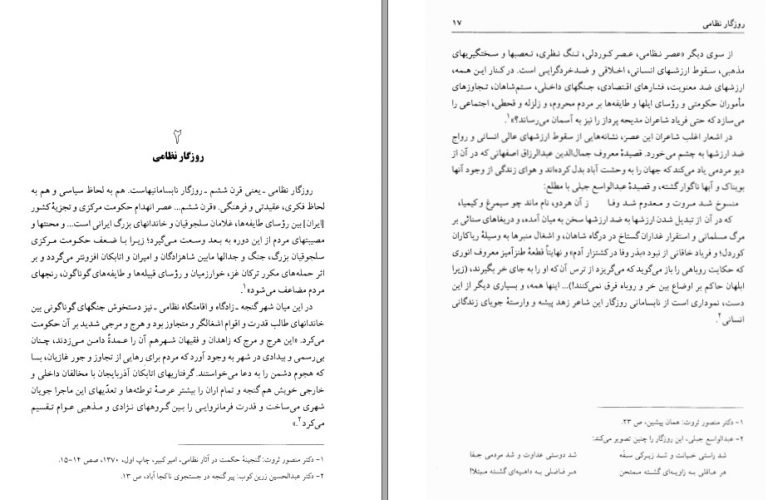 ۲
روزگار نظامی
روزگار نظامی ـ یعنی قرن ششم ـ روزگار نابسامانیهاست. هم به لحاظ سیاسی و هم به
لحاظ فکری، عقیدتی و فرهنگی. «قرن ششم... عصر انهدام حکومت مرکزی و تجزیهٔ کشور
[ایران] بین رؤسای طایفه‌ها، غلامان سلجوقیان و خاندانهای بزرگ ایرانی است... و محنتها و
مصیبتهای مردم از این دوره به بعد وسعت می‌گیرد؛ زیرا با ضعف حکومت مرکزی
سلجوقیان بزرگ، جنگ و جدالها مابین شاهزادگان و امیران و اتابکان افزونتر می‌گردد و بر
اثر حمله‌های مکرر ترکان غز، خوارزمیان و رؤسای قبیله‌ها و طایفه‌های گوناگون، رنجهای
مردم مضاعف می‌شود»۱.
در این میان شهر گنجه ـ زادگاه و اقامتگاه نظامی ـ نیز دستخوش جنگهای گوناگونی بین
خاندانهای طالب قدرت و اقوام اشغالگر و متجاوز بود و هرج و مرجی شدید بر آن حکومت
می‌کرد. «این هرج و مرج که زاهدان و فقیهان شهر هم آن را عمدةً دامن می‌زدند، چنان
بی‌رسمی و بیدادی در شهر به وجود آورد که مردم برای رهایی از تجاوز و جور غازیان، بسا
که هجوم دشمن را به دعا می‌خواستند. گرفتاریهای اتابکان آذربایجان با مخالفان داخلی و
خارجی خویش هم گنجه و تمام اران را بیشتر عرصهٔ توطئه‌ها و تعدّیهای این ماجرا جویان
شهری می‌ساخت و قدرت فرمانروایی را بین گروههای نژادی و مذهبی عوام تقسیم
می‌کرد»۲.
۱- دکتر منصور ثروت: گنجینهٔ حکمت در آثار نظامی، امیرکبیر، چاپ اول، ۱۳۷۰، صص ۱۴-۱۵.
۲- دکتر عبدالحسین زرین کوب: پیر گنجه در جستجوی ناکجا آباد، ص ۱۳.
روزگار نظامی ۱۷
از سوی دیگر «عصر نظامی، عصر کوردلی، تنگ نظری، تعصبها و سختگیریهای
مذهبی، سقوط ارزشهای انسانی، اخلاقی و ضدخردگرایی است. در کنار این همه،
ارزشهای ضد معنویت، فشارهای اقتصادی، جنگهای داخلی، ستم‌شاهان، تجاوزهای
مأموران حکومتی و رؤسای ایلها و طایفه‌ها بر مردم محروم، و زلزله و قحطی، اجتماعی را
می‌سازد که حتی فریاد شاعران مدیحه پرداز را نیز به آسمان می‌رساند؟»۱.
در اشعار اغلب شاعران این عصر، نشانه‌هایی از سقوط ارزشهای عالی انسانی و رواج
ضد ارزشها به چشم می‌خورد. قصیدهٔ معروف جمال‌الدین عبدالرزاق اصفهانی که در آن از
دیو مردمی یاد می‌کند که جهان را به وحشت آباد بدل کرده‌اند و هوای زندگی از وجود آنها
بویناک و آبها ناگوار گشته، و قصیدهٔ عبدالواسع جبلی با مطلع:
منسوخ شد مروت و معدوم شد وفا ز آن هردو، نام ماند چو سیمرغ و کیمیاء
که در آن از تبدیل شدن ارزشها به ضد ارزشها سخن به میان آمده، و دریغاهای سنائی بر
مرگ مسلمانی و استقرار غداران گستاخ در درگاه شاهان، و اشغال منبرها به وسیلهٔ ریاکاران
کوردل؛ و فریاد خاقانی از نبود «بذر وفا در کشتزار آدم» و نهایتاً قطعهٔ طنزآمیز معروف انوری
که حکایت روباهی را باز می‌گوید که می‌گریزد از ترس آن که او را به جای خر بگیرند، (زیرا
ابلهان حاکم بر اوضاع بین خر و روباه فرق نمی‌کنند!)... اینها همه، و بسیاری دیگر از این
دست، نموداری است از نابسامانی روزگار این شاعر زهد پیشه و وارستهٔ جویای زندگانی
انسانی.۲
۱- دکتر منصور ثروت: همان پیشین، ص ۲۳.
۲- عبدالواسع جبلی، این روزگار را چنین تصویر می‌کند:
شد راستی خیانت و شد زیرکی سفه شد دوستی عداوت و شد مردمی جفا
هر عاقلی به زاویه‌ای گشته ممتحن هر فاضلی به داهیه‌ای گشته مبتلا!